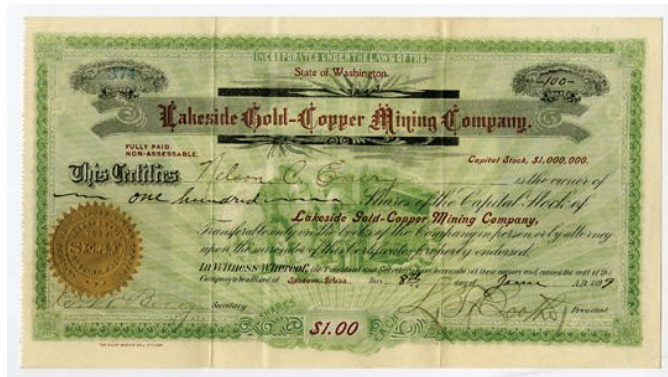 INCORPORATED UNDER THE LAWS OF THE
State of Washington.
371 -100-
Lakeside Gold-Copper Mining Company.
FULLY PAID.
NON-ASSESSABLE.
Capital Stock, $1,000,000.
This Certifies Nelson C. Emery is the owner of
one hundred Shares of the Capital Stock of
Lakeside Gold-Copper Mining Company,
Transferable only on the books of the Company in person or by attorney
upon the surrender of this Certificate properly endorsed.
In Witness Whereof, the President and Secretary hereunto set their names and caused the seal of the
Company to be affixed at Spokane, Wash. this 8th day of June A.D.
SEAL
Secretary
President
SHARES
$1.00